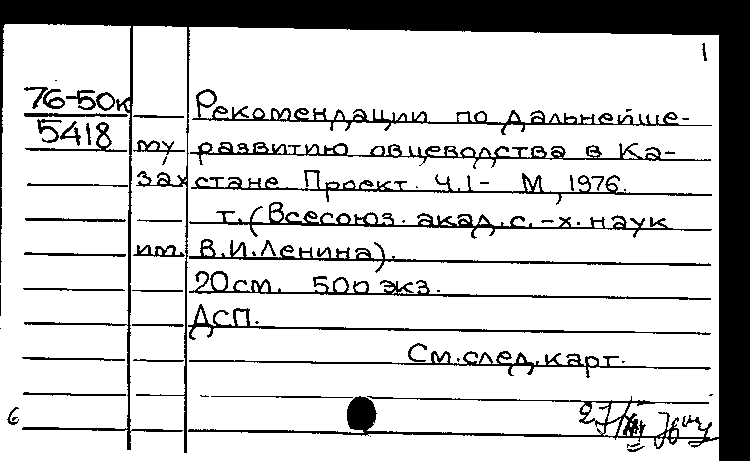 1
76-50к
5418
Рекомендации по дальнейше-
му развитию овцеводства в Ка-
захстане. Проект. Ч.1- М, 1976.
т. (Всесоюз. акад. с.-х. наук
им. В.И.Ленина).
20см. 500 экз.
ДСП.
См. след. карт.
6
27/XII